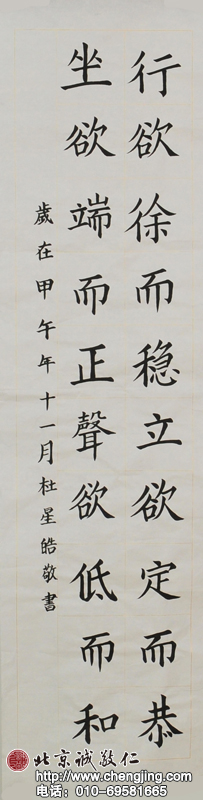 行欲徐而稳立欲定而恭
坐欲端而正聲欲低而和
歲在甲午年十一月杜星皓敬書
北京诚敬仁
http://www.chengjing.com
电话：010-69581665